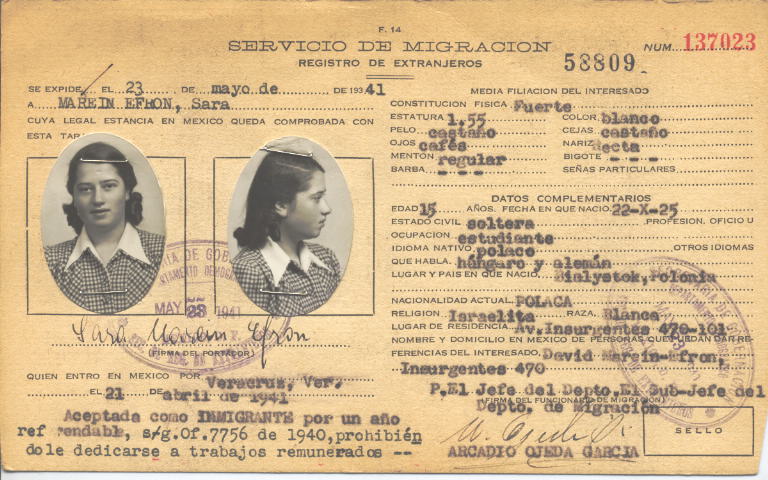 F. 14
SERVICIO DE MIGRACION
REGISTRO DE EXTRANJEROS
NUM. 137023
58809
SE EXPIDE EL 23 DE mayo de DE 19341
A MAREIN EFRON, Sara
CUYA LEGAL ESTANCIA EN MEXICO QUEDA COMPROBADA CON
ESTA TAR
MAY 23 1941
Sara Marein Efron
(FIRMA DEL PORTADOR)
QUIEN ENTRO EN MEXICO POR Veracruz, Ver.
EL 21 DE abril de 1941
Aceptada como INMIGRANTE por un año
ref rendable, s/g.Of.7756 de 1940,prohibién
dole dedicarse a trabajos remunerados --
MEDIA FILIACION DEL INTERESADO
CONSTITUCION FISICA Fuerte
ESTATURA 1.55 COLOR blanco
PELO castaño CEJAS castaño
OJOS cafés NARIZ recta
MENTON regular BIGOTE - - -
BARBA - - - SEÑAS PARTICULARES
DATOS COMPLEMENTARIOS
EDAD 15 AÑOS. FECHA EN QUE NACIO 22-X-25
ESTADO CIVIL soltera PROFESION, OFICIO U
OCUPACION estudiante
IDIOMA NATIVO polaco OTROS IDIOMAS
QUE HABLA húngaro y alemán
LUGAR Y PAIS EN QUE NACIO Bialystok, Polonia
NACIONALIDAD ACTUAL POLACA
RELIGION Israelita RAZA Blanca
LUGAR DE RESIDENCIA Av.Insurgentes 470-101
NOMBRE Y DOMICILIO EN MEXICO DE PERSONAS QUE PUEDAN DAR RE-
FERENCIAS DEL INTERESADO David Marein-Efron,
Insurgentes 470
P.El Jefe del Depto.El Sub-Jefe del
(FIRMA DEL FUNCIONARIO DE MIGRACION)
Depto. de Migración
ARCADIO OJEDA GARCIA
SELLO